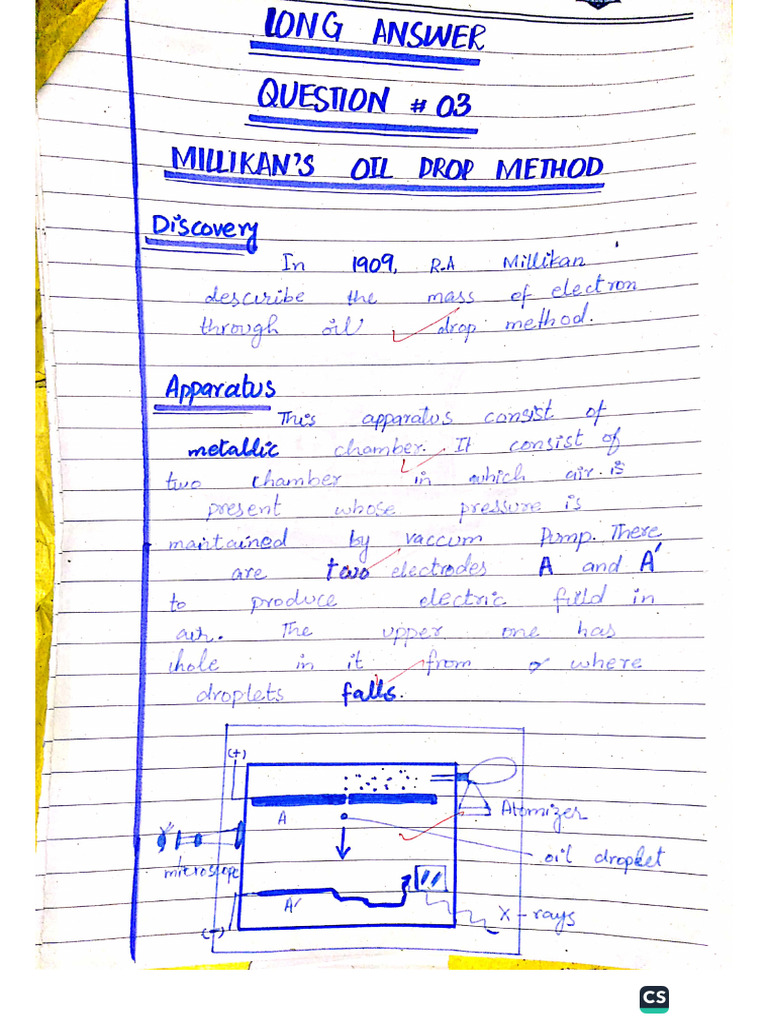 LONG ANSWER
QUESTION # 03
MILLIKAN'S OIL DROP METHOD
Discovery
In 1909, R.A Millikan
describe the mass of electron
through oil drop method.
Apparatus
This apparatus consist of
metallic chamber. It consist of
two chamber in which air is
present whose pressure is
maintained by vaccum Pump. There
are two electrodes A and A'
to produce electric field in
air. The upper one has
hole in it from where
droplets falls.
(+)
A
Atomizer
oil droplet
microscope
A'
(-)
X-rays
CS